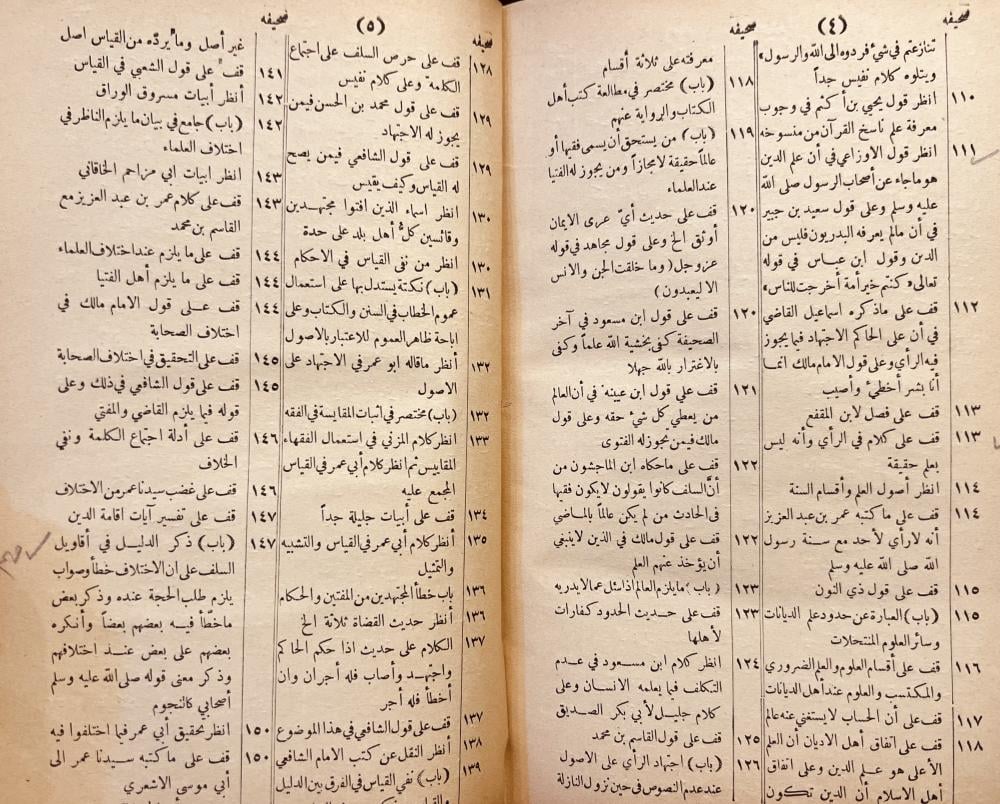 صحيفه
(٤)
صحيفه
تنازعتم في شئ فردوه الى الله والرسول»
ويتلوه كلام نفيس جداً
١١٠ انظر قول يحيي بن أكثم في وجوب
معرفة علم ناسخ القرآن من منسوخه
١١١ انظر قول الاوزاعي في أن علم الدين
هو ماجاء عن أصحاب الرسول صلى الله
عليه وسلم وعلى قول سعيد بن جبير
في أن مالم يعرفه البدريون فليس من
الدين وقول ابن عباس في قوله
تعالى «كنتم خير أمة أخرجت للناس»
١١٢ قف على ماذكره اسماعيل القاضي
في أن على الحاكم الاجتهاد فيما يجوز
فيه الرأي وعلى قول الامام مالك انما
أنا بشر أخطئ وأصيب
١١٣ قف على فصل لابن المقفع
١١٣ قف على كلام في الرأي وأنه ليس
بعلم حقيقة
١١٤ انظر أصول العلم وأقسام السنة
١١٤ قف على ماكتبه عمر بن عبد العزيز
أنه لارأي لأحد مع سنة رسول
الله صلى الله عليه وسلم
١١٥ قف على قول ذي النون
١١٥ (باب) العبارة عن حدود علم الديانات
وسائر العلوم المنتحلات
١١٦ قف على أقسام العلوم والعلم الضروري
والمكتسب والعلوم عند أهل الديانات
١١٧ قف على أن الحساب لا يستغني عنه عالم
١١٨ قف على اتفاق أهل الاديان أن العلم
الأعلى هو علم الدين وعلى اتفاق
أهل الاسلام أن الدين تكون
معرفته على ثلاثة أقسام
١١٨ (باب) مختصر في مطالعة كتب أهل
الكتاب والرواية عنهم
١١٩ (باب) من يستحق أن يسمى فقيها أو
عالماً حقيقة لا مجازاً ومن يجوز له الفتيا
عند العلماء
١٢٠ قف على حديث أيّ عرى الايمان
أوثق الخ وعلى قول مجاهد في قوله
عز وجل (وما خلقت الجن والانس
الا ليعبدون)
١٢٠ قف على قول ابن مسعود في آخر
الصحيفة كفى بخشية الله علماً وكفى
بالاغترار بالله جهلا
١٢١ قف على قول ابن عيينه في أن العالم
من يعطي كل شئ حقه وعلى قول
مالك فيمن تجوز له الفتوى
١٢٢ قف على ماحكاه ابن الماجشون من
أن السلف كانوا يقولون لا يكون فقيها
في الحادث من لم يكن عالماً بالماضي
١٢٢ قف على قول مالك في الذين لاينبغي
أن يؤخذ عنهم العلم
١٢٣ (باب) مايلزم العالم اذا سئل عما لا يدريه
١٢٣ قف على حديث الحدود كفارات
لأهلها
١٢٤ انظر كلام ابن مسعود في عدم
التكلف فيما يعلمه الانسان وعلى
كلام جليل لأبي بكر الصديق
١٢٥ قف على قول القاسم بن محمد
١٢٦ (باب) اجتهاد الرأي على الاصول
عند عدم النصوص في حين نزول النازلة
صحيفه
(٥)
صحيفه
١٢٨ قف على حرص السلف على اجتماع
الكلمة وعلى كلام نفيس
١٢٩ قف على قول محمد بن الحسن فيمن
يجوز له الاجتهاد
١٢٩ قف على قول الشافعي فيمن يصح
له القياس وكيف يقيس
١٣٠ انظر اسماء الذين افتوا مجتهدين
وقائسين كلُّ أهل بلد على حدة
١٣٠ انظر من نفى القياس في الاحكام
١٣١ (باب) نكتة يستدل بها على استعمال
عموم الخطاب في السنن والكتاب وعلى
اباحة ظاهر العموم للاعتبار بالاصول
١٣٢ أنظر ماقاله ابو عمر في الاجتهاد على
الاصول
١٣٢ (باب) مختصر في اثبات المقايسة في الفقه
١٣٣ انظر كلام المزني في استعمال الفقهاء
المقاييس ثم انظر كلام أبي عمر في القياس
المجمع عليه
١٣٤ قف على أبيات جليلة جداً
١٣٥ أنظر كلام أبي عمر في القياس والتشبيه
والتمثيل
١٣٦ باب خطأ المجتهدين من المفتين والحكام
١٣٦ أنظر حديث القضاة ثلاثة الخ
١٣٧ الكلام على حديث اذا حكم الحاكم
واجتهد وأصاب فله أجران وان
أخطأ فله أجر
١٣٧ قف على قول الشافعي في هذا الموضوع
١٣٨ أنظر النقل عن كتب الامام الشافعي
١٣٩ (باب) نفي القياس في الفرق بين الدليل
غير أصل وما يردّه من القياس اصل
١٤١ قف على قول الشعبي في القياس
١٤٢ أنظر أبيات مسروق الوراق
١٤٢ (باب) جامع في بيان ما يلزم الناظر في
اختلاف العلماء
١٤٣ انظر ابيات ابي مزاحم الخاقاني
١٤٣ قف على كلام عمر بن عبد العزيز مع
القاسم بن محمد
١٤٤ قف على ما يلزم عند اختلاف العلماء
١٤٤ قف على ما يلزم أهل الفتيا
١٤٤ قف على قول الامام مالك في
اختلاف الصحابة
١٤٥ قف على التحقيق في اختلاف الصحابة
١٤٥ قف على قول الشافعي في ذلك وعلى
قوله فيما يلزم القاضي والمفتي
١٤٦ قف على أدلة اجتماع الكلمة ونفي
الخلاف
١٤٦ قف على غضب سيدنا عمر من الاختلاف
١٤٧ قف على تفسير آيات اقامة الدين
١٤٧ (باب) ذكر الدليل في أقاويل
السلف على ان الاختلاف خطأ وصواب
يلزم طلب الحجة عنده وذكر بعض
ماخطأ فيه بعضهم بعضاً وأنكره
بعضهم على بعض عند اختلافهم
وذكر معنى قوله صلى الله عليه وسلم
أصحابي كالنجوم
١٥٠ انظر تحقيق أبي عمر فيما اختلفوا فيه
١٥٠ قف على ماكتبه سيدنا عمر الى
أبي موسى الاشعري